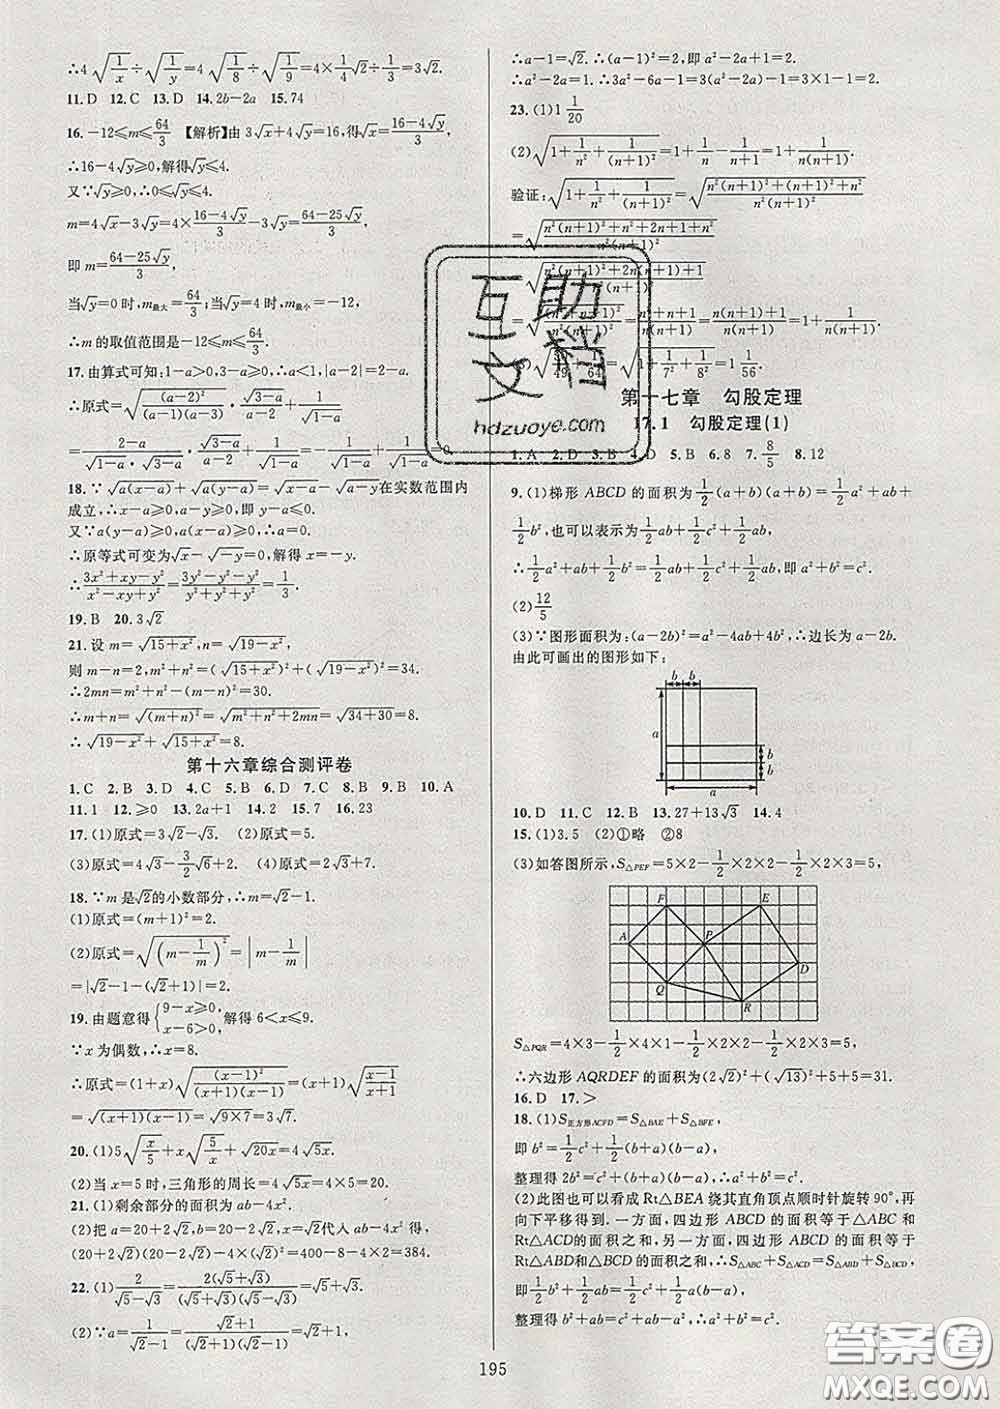 ∴4√(1/x)÷√(1/y)=4√(1/8)÷√(1/9)=4×(1/4)√2÷1/3=3√2.
11.D 12.C 13.D 14.2b-2a 15.74
16.-12≤m≤64/3 【解析】由3√x+4√y=16,得√x=(16-4√y)/3,
∴16-4√y≥0,解得√y≤4.
又∵√y≥0,∴0≤√y≤4.
m=4√x-3√y=4×(16-4√y)/3-3√y=(64-25√y)/3,
即m=(64-25√y)/3,
当√y=0时,m最大=64/3;当√y=4时,m最小=-12,
∴m的取值范围是-12≤m≤64/3.
17.由算式可知:1-a>0,3-a>0,∴a<1,|a-2|=2-a.
∴原式=√((a-2)²/((a-1)(a-3)))·√(3-a)/(a-2)+1/√(1-a)
=(2-a)/(√(1-a)·√(3-a))·√(3-a)/(a-2)+1/√(1-a)=-1/√(1-a)+1/√(1-a)=0.
18.∵√(a(x-a))+√(a(y-a))=√(x-a)-√(a-y)在实数范围内
成立,∴x-a≥0,a-y≥0,即y≤a≤x.
又∵a(y-a)≥0,a(x-a)≥0,∴a=0.
∴原等式可变为√x-√(-y)=0,解得x=-y.
∴(3x²+xy-y²)/(x²-xy+y²)=(3y²-y²-y²)/(y²+y²+y²)=1/3.
19.B 20.3√2
21.设m=√(15+x²),n=√(19-x²),
则m-n=2,m²+n²=(√(15+x²))²+(√(19-x²))²=34.
∴2mn=m²+n²-(m-n)²=30.
∴m+n=√((m+n)²)=√(m²+n²+2mn)=√(34+30)=8.
∴√(19-x²)+√(15+x²)=8.
第十六章综合测评卷
1.C 2.B 3.D 4.C 5.B 6.D 7.C 8.B 9.B 10.A
11.1 12.≥0 13.2a+1 14.2 15.7 16.23
17.(1)原式=3√2-√3. (2)原式=5.
(3)原式=4√3-(3/2)√6+2. (4)原式=7+2√3.
18.∵m是√2的小数部分,∴m=√2-1.
(1)原式=(m+1)²=2.
(2)原式=√((m-1/m)²)=|m-1/m|
=|√2-1-(√2+1)|=2.
19.由题意得{9-x≥0, x-6>0, 解得6<x≤9.
∵x为偶数,∴x=8.
∴原式=(1+x)√((x-1)²/((x+1)(x-1)))=(x+1)√((x-1)/(x+1))
=√((x+1)(x-1))=√(9×7)=3√7.
20.(1)5√(x/5)+x√(5/x)+√(20x)=4√(5x)
(2)当x=5时,三角形的周长=4√(5x)=4×5=20.
21.(1)剩余部分的面积为ab-4x².
(2)把a=20+2√2,b=20-2√2,x=√2代入ab-4x²得,
(20+2√2)(20-2√2)-4×(√2)²=400-8-4×2=384.
22.(1)2/(√5-√3)=2(√5+√3)/((√5+√3)(√5-√3))=√5+√3.
(2)∵a=1/(√2-1)=(√2+1)/((√2+1)(√2-1))=√2+1,
∴a-1=√2.∴(a-1)²=2,即a²-2a+1=2.
∴a²-2a=1.∴3a²-6a-1=3(a²-2a)-1=3×1-1=2.
23.(1)1 1/20
(2)√(1+1/n²+1/(n+1)²)=1+1/n-1/(n+1)=1+1/(n(n+1)).
验证:√(1+1/n²+1/(n+1)²)=√((n²(n+1)²+(n+1)²+n²)/(n²(n+1)²))
=√((n²(n+1)²+n²+2n+1+n²)/(n²(n+1)²))
=√((n²(n+1)²+2n(n+1)+1)/(n²(n+1)²))
(n²+n+1)/(n(n+1))=(n(n+1)+1)/(n(n+1))=1+1/(n(n+1)).
=√(1+1/7²+1/8²)=1 1/56.
第十七章 勾股定理
17.1 勾股定理(1)
1.A 2.D 3.B 4.D 5.B 6.8 7.8/5 8.12
9.(1)梯形ABCD的面积为1/2(a+b)(a+b)=1/2a²+ab+
1/2b²,也可以表示为1/2ab+1/2c²+1/2ab,
∴1/2a²+ab+1/2b²=1/2ab+1/2c²+1/2ab,即a²+b²=c².
(2)12/5
(3)∵图形面积为:(a-2b)²=a²-4ab+4b²,∴边长为a-2b.
由此可画出的图形如下:
b b
a
b
b
a
10.D 11.C 12.B 13.27+13√3 14.4
15.(1)3.5 (2)①略 ②8
(3)如答图所示,S△PEF=5×2-1/2×2×2-1/2×2×3=5,
F E
A P
D
Q
R
S△PQR=4×3-1/2×4×1-1/2×2×2-1/2×2×3=5,
∴六边形AQRDEF的面积为(2√2)²+(√13)²+5+5=31.
16.D 17.>
18.(1)S正方形ACFD=S△BAE+S△BFE,
即b²=1/2c²+1/2(b+a)(b-a),
整理得2b²=c²+(b+a)(b-a),∴a²+b²=c².
(2)此图也可以看成Rt△BEA绕其直角顶点顺时针旋转90°,再
向下平移得到.一方面,四边形ABCD的面积等于△ABC和
Rt△ACD的面积之和,另一方面,四边形ABCD的面积等于
Rt△ABD和△BCD的面积之和,∴S△ABC+S△ACD=S△ABD+S△BCD,
即1/2b²+1/2ab=1/2c²+1/2a(b-a),
整理得b²+ab=c²+a(b-a),b²+ab=c²+ab-a²,∴a²+b²=c².
195
互助文档
hdzuoye.com
答案圈
MXQE.COM